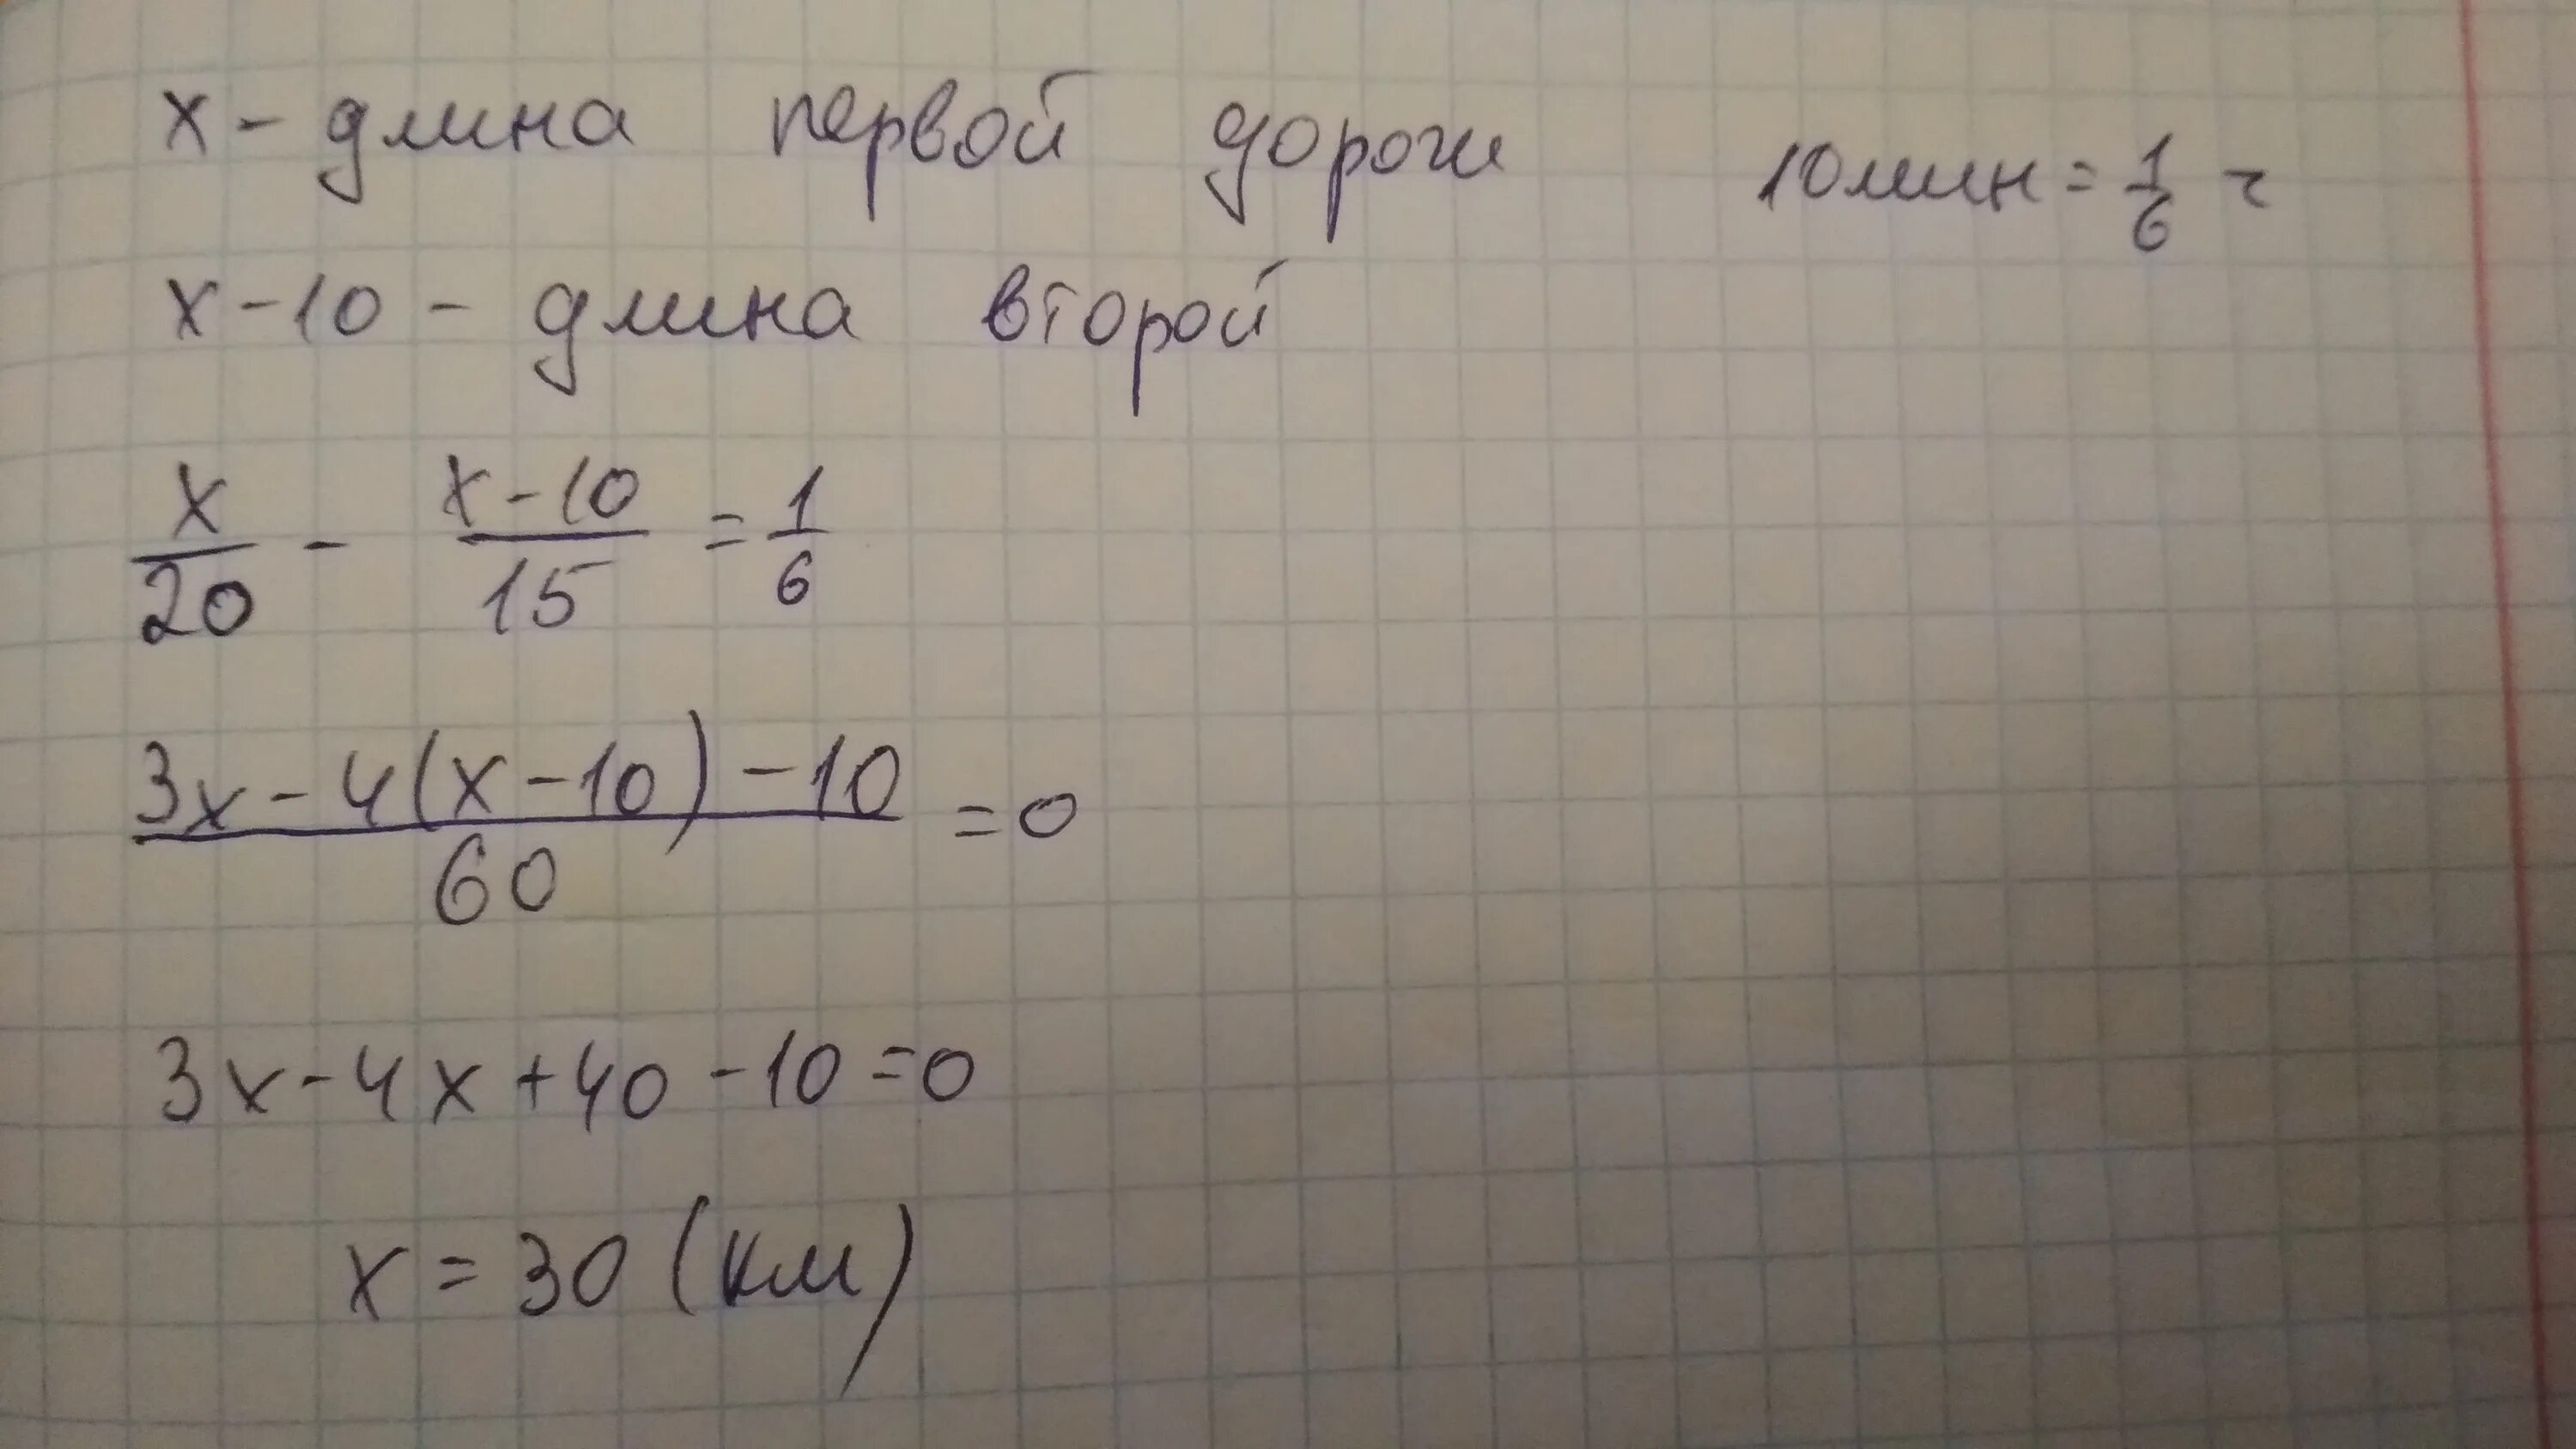 x - длина первой дороги 10мин = 1/6 ч
x - 10 - длина второй
x/20 - (x - 10)/15 = 1/6
(3x - 4(x - 10) - 10)/60 = 0
3x - 4x + 40 - 10 = 0
x = 30 (км)